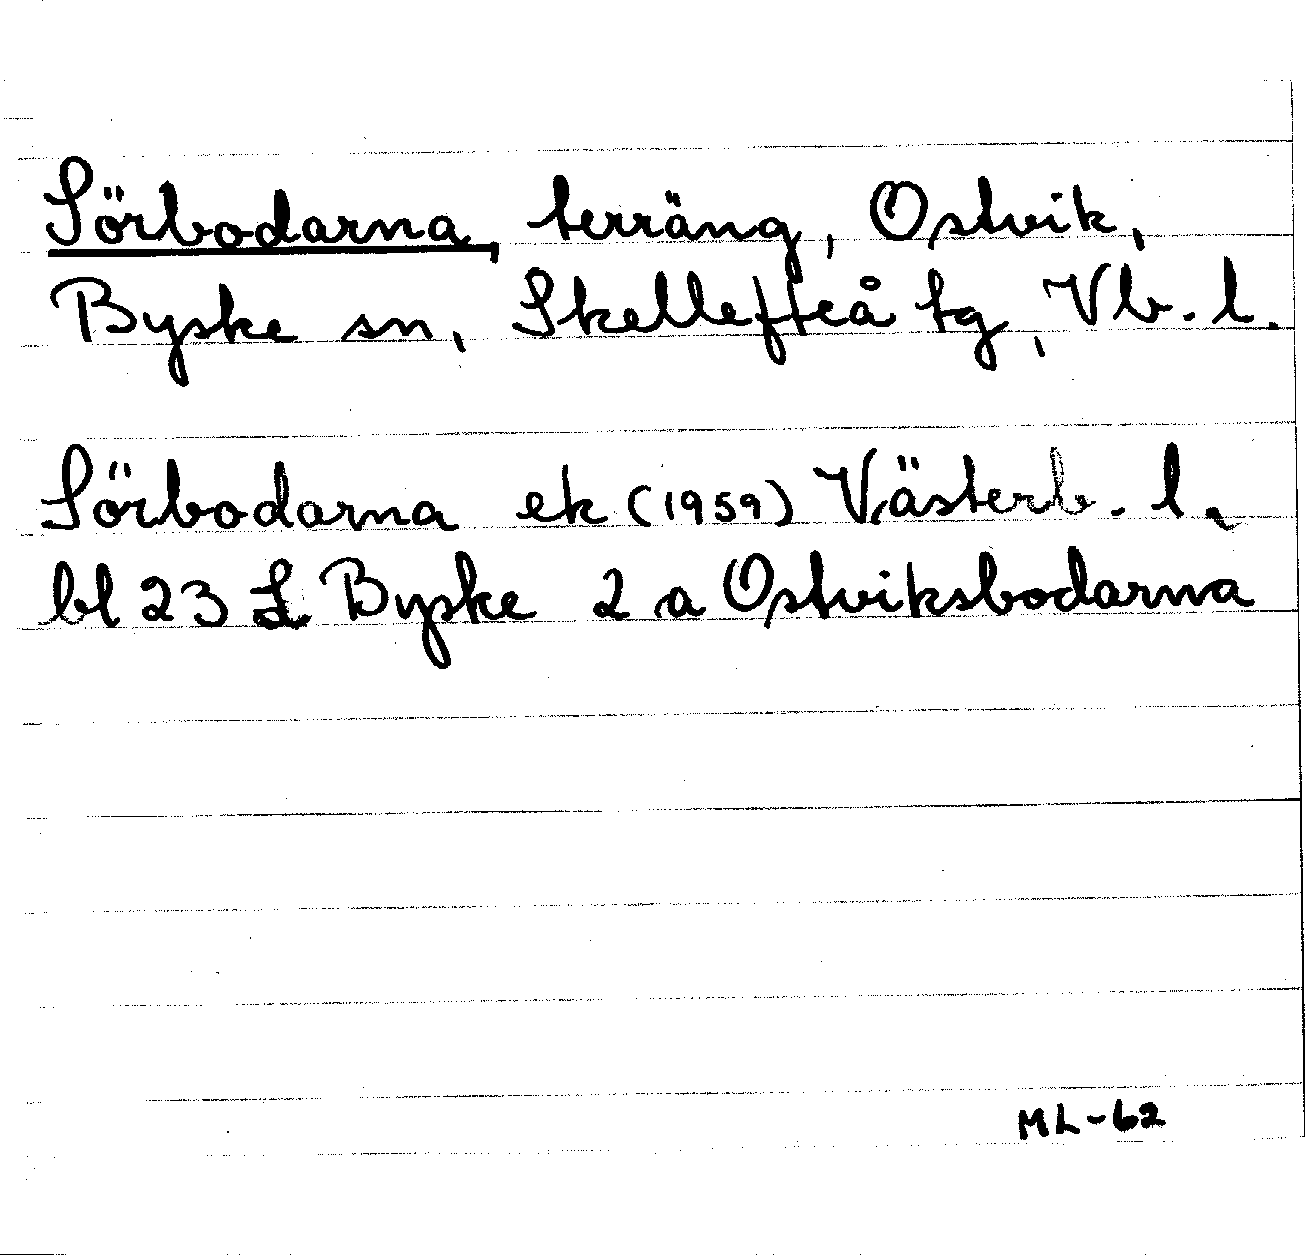 Sörbodarna, terräng, Ostvik,
Byske sn, Skellefteå tg, Vb. l.
Sörbodarna ek (1959) Västerb. l.
bl 23 L Byske 2 a Ostviksbodarna
ML-62